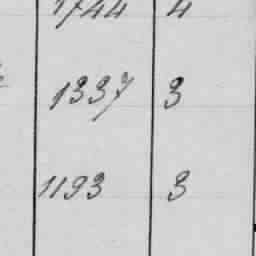 1744 4
1337 3
1193 3